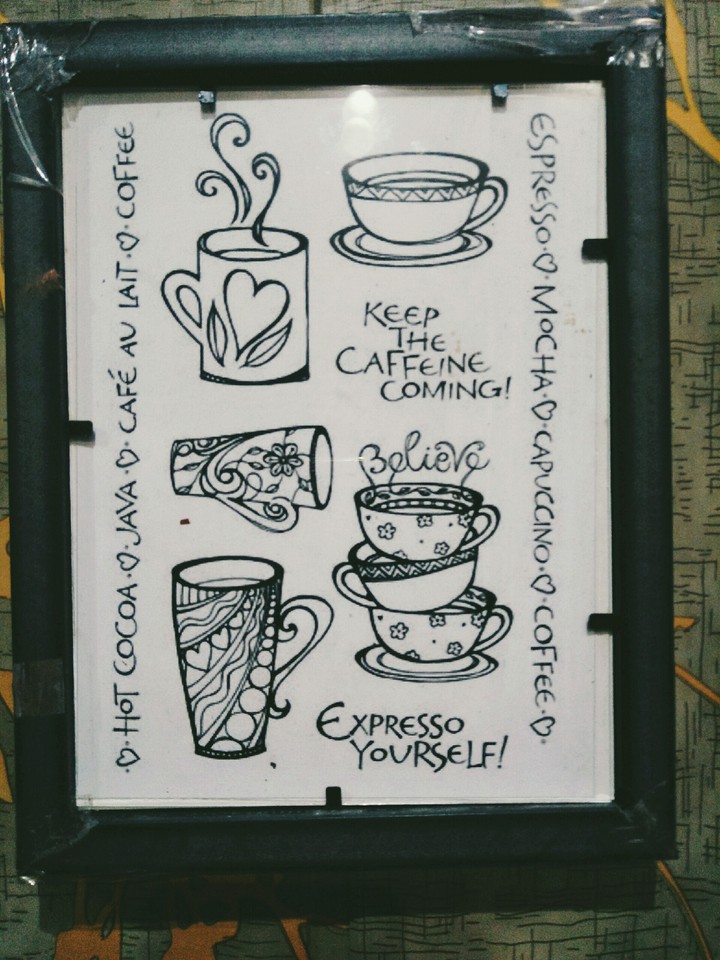 ♡·HOT COCOA·♡·JAVA·♡·CAFÉ AU LAIT·♡·COFFEE
ESPRESSO·♡·MOCHA·♡·CAPUCCINO·♡·COFFEE·♡·
KEEP
THE
CAFFEINE
COMING!
Believe
EXPRESSO
YOURSELF!